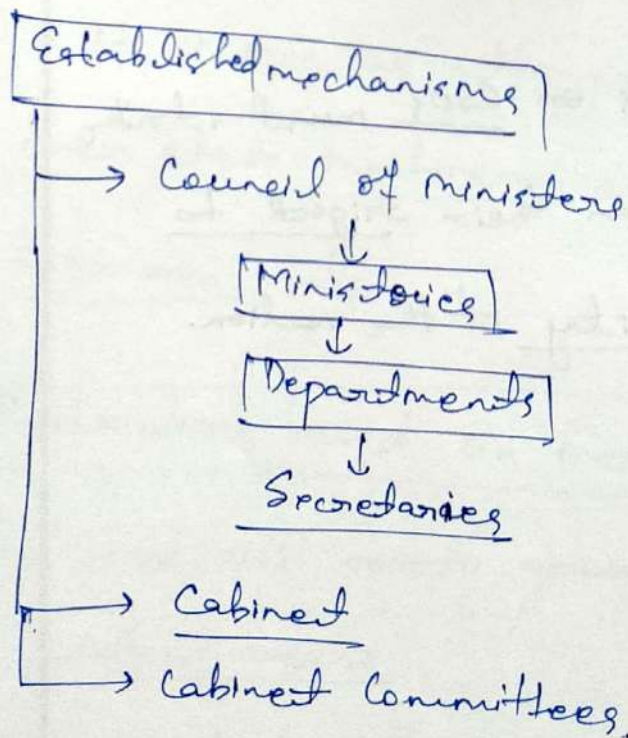 Established mechanisms
Council of ministers
Ministories
Departments
Secretaries
Cabinet
Cabinet Committees.